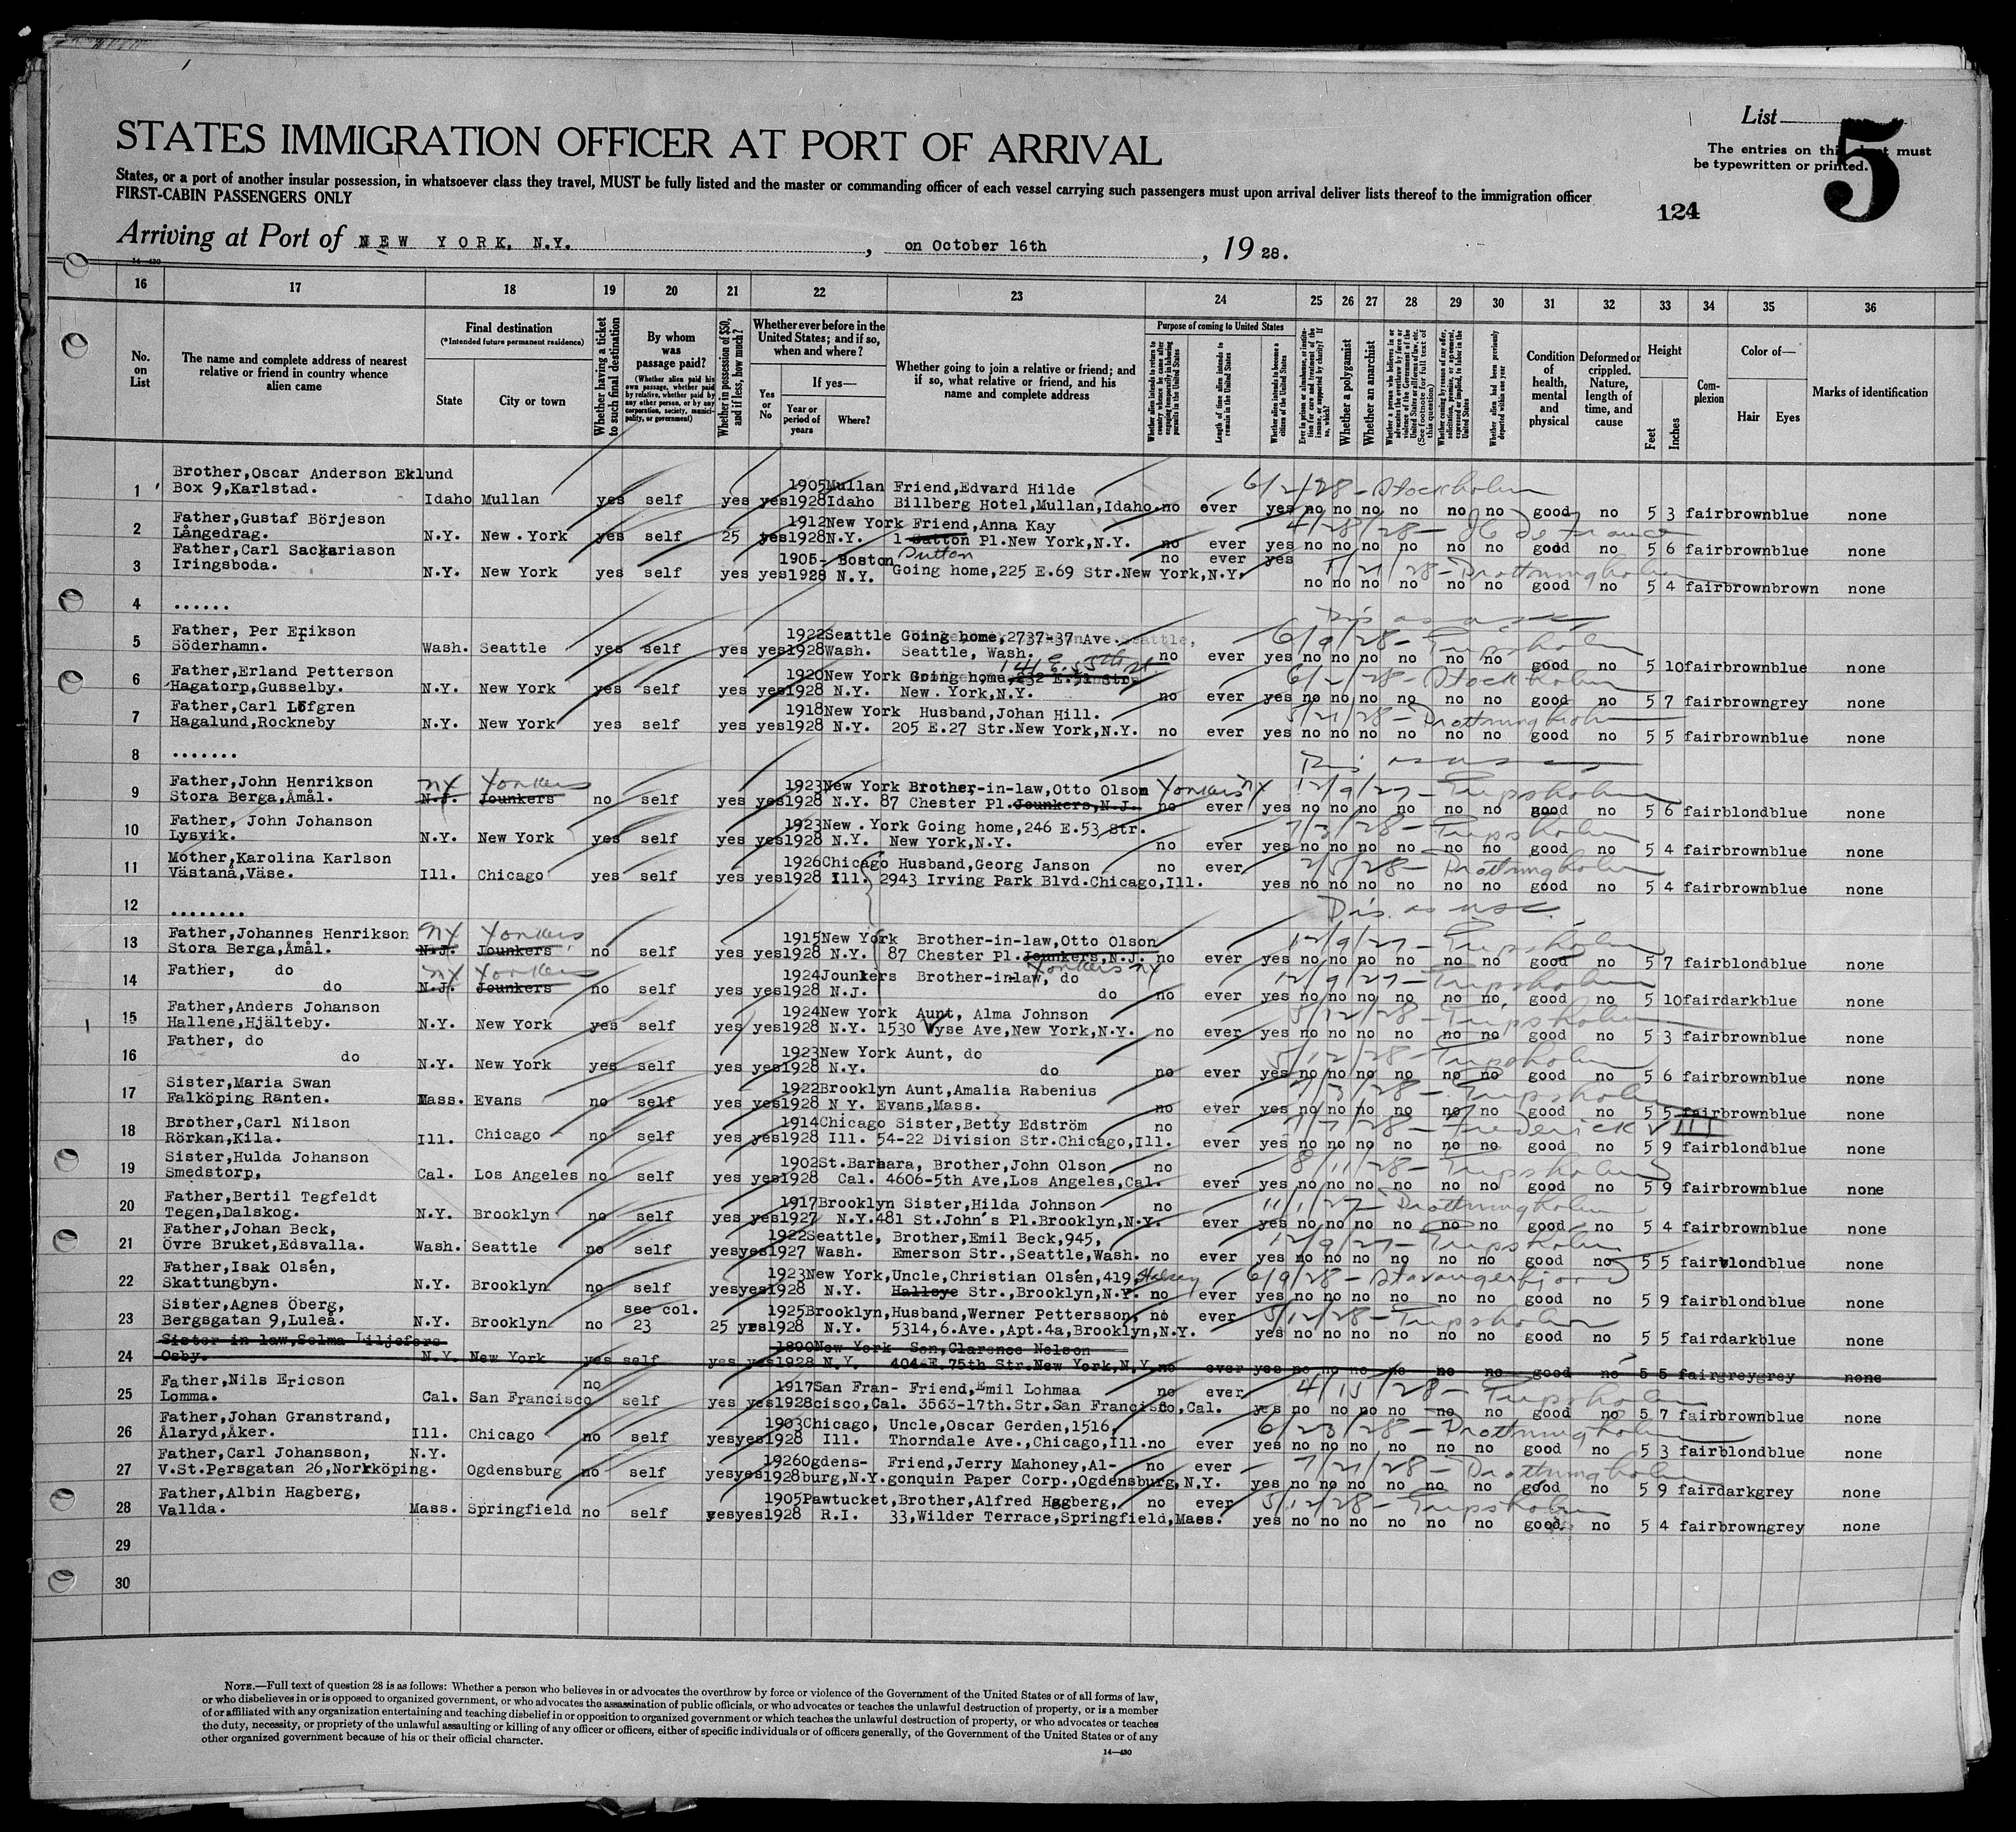 List
5
STATES IMMIGRATION OFFICER AT PORT OF ARRIVAL
The entries on this must
be typewritten or printed.
States, or a port of another insular possession, in whatsoever class they travel, MUST be fully listed and the master or commanding officer of each vessel carrying such passengers must upon arrival deliver lists thereof to the immigration officer
FIRST-CABIN PASSENGERS ONLY
124
Arriving at Port of NEW YORK, N.Y., on October 16th, 1928.
14-430
16 17 18 19 20 21 22 23 24 25 26 27 28 29 30 31 32 33 34 35 36
No. on List
The name and complete address of nearest relative or friend in country whence alien came
Final destination
(*Intended future permanent residence)
State
City or town
Whether having a ticket to such final destination
By whom was passage paid?
(Whether alien paid his own passage, whether paid by relative, whether paid by any other person, or by any corporation, society, municipality, or government)
Whether in possession of $50, and if less, how much?
Whether ever before in the United States; and if so, when and where?
Yes or No
If yes—
Year or period of years
Where?
Whether going to join a relative or friend; and if so, what relative or friend, and his name and complete address
Purpose of coming to United States
Whether alien intends to return to country whence he came after engaging temporarily in laboring pursuits in the United States
Length of time alien intends to remain in the United States
Whether alien intends to become a citizen of the United States
Whether a polygamist
Whether an anarchist
Condition of health, mental and physical
Deformed or crippled. Nature, length of time, and cause
Height
Feet
Inches
Complexion
Color of—
Hair
Eyes
Marks of identification
Brother,Oscar Anderson Eklund 1905 Mullan Friend,Edvard Hilde 6/2/28 - Stockholm
1 Box 9,Karlstad. Idaho Mullan yes self yes yes 1928 Idaho Billberg Hotel,Mullan,Idaho. no ever yes no no no no no no good no 5 3 fair brown blue none
Father,Gustaf Börjeson 1912 New York Friend,Anna Kay 4/28/28 - Ile de France
2 Långedrag. N.Y. New York yes self 25 yes 1928 N.Y. 1 Satton Pl.New York,N.Y. no ever yes no no no no no no good no 5 6 fair brown blue none
Sutton
Father,Carl Sackariason 1905- Boston no ever yes 5/21/28 - Drottningholm
3 Iringsboda. N.Y. New York yes self yes yes 1928 N.Y. Going home,225 E.69 Str.New York,N.Y. no no no no no no good no 5 4 fair brown brown none
4 ...... Dis as usc
Father, Per Erikson 1922 Seattle Going home,2737-37 Ave. 6/9/28 - Gripsholm
5 Söderhamn. Wash. Seattle yes self yes yes 1928 Wash. Seattle, Wash. no ever yes no no no no no no good no 5 10 fair brown blue none
141 E. 55th St
Father,Erland Petterson 1920 New York Going home,232 E.51 Str. 6/2/28 - Stockholm
6 Hagatorp,Gusselby. N.Y. New York yes self yes yes 1928 N.Y. New York,N.Y. no ever yes no no no no no no good no 5 7 fair brown grey none
Father,Carl Löfgren 1918 New York Husband,Johan Hill. 5/21/28 - Drottningholm
7 Hagalund,Rockneby N.Y. New York yes self yes yes 1928 N.Y. 205 E.27 Str.New York,N.Y. no ever yes no no no no no no good no 5 5 fair brown blue none
8 ....... Dis as usc
Father,John Henrikson NY Yonkers 1923 New York Brother-in-law,Otto Olson Yonkers NY 12/9/27 - Gripsholm
9 Stora Berga,Åmål. N.J. Jounkers no self yes yes 1928 N.Y. 87 Chester Pl.Jounkers,N.J. no ever yes no no no no no no good no 5 6 fair blond blue none
Father, John Johanson 1923 New York Going home,246 E.53 Str. 7/3/28 - Gripsholm
10 Lysvik. N.Y. New York yes self yes yes 1928 N.Y. New York,N.Y. no ever yes no no no no no no good no 5 4 fair brown blue none
Mother,Karolina Karlson 1926 Chicago Husband,Georg Janson no ever 2/5/28 - Drottningholm
11 Västanå,Väse. Ill. Chicago yes self yes yes 1928 Ill. 2943 Irving Park Blvd.Chicago,Ill. yes no no no no no no good no 5 4 fair brown blue none
12 ........ Dis. as usc.
Father,Johannes Henrikson NY Yonkers 1915 New York Brother-in-law,Otto Olson 12/9/27 - Gripsholm
13 Stora Berga,Åmål. N.J. Jounkers no self yes yes 1928 N.Y. 87 Chester Pl.Jounkers,N.J. no ever yes no no no no no no good no 5 7 fair blond blue none
Father, do NY Yonkers 1924 Jounkers Brother-in-law, do Yonkers NY 12/9/27 - Gripsholm
14 do N.J. Jounkers no self yes yes 1928 N.J. do no ever yes no no no no no no good no 5 10 fair dark blue none
Father,Anders Johanson 1924 New York Aunt, Alma Johnson 5/12/28 - Gripsholm
15 Hallene,Hjälteby. N.Y. New York yes self yes yes 1928 N.Y. 1530 Vyse Ave,New York,N.Y. no ever yes no no no no no no good no 5 3 fair brown blue none
Father, do 1923 New York Aunt, do 5/12/28 - Gripsholm
16 do N.Y. New York yes self yes yes 1928 N.Y. do no ever yes no no no no no no good no 5 6 fair brown blue none
Sister,Maria Swan 1922 Brooklyn Aunt,Amalia Rabenius 7/3/28 - Gripsholm
17 Falköping Ranten. Mass. Evans no self yes yes 1928 N Y. Evans,Mass. no ever yes no no no no no no good no 5 5 fair brown blue none
Brother,Carl Nilson 1914 Chicago Sister,Betty Edström no 7/7/28 - Frederick VIII
18 Rörkan,Kila. Ill. Chicago no self yes yes 1928 Ill. 54-22 Division Str.Chicago,Ill. ever yes no no no no no no good no 5 9 fair blond blue none
Sister,Hulda Johanson 1902 St.Barbara, Brother,John Olson no 8/11/28 - Gripsholm
19 Smedstorp, Cal. Los Angeles no self yes yes 1928 Cal. 4606-5th Ave,Los Angeles,Cal. ever yes no no no no no no good no 5 9 fair brown blue none
Father,Bertil Tegfeldt 1917 Brooklyn Sister,Hilda Johnson no 11/1/27 - Drottningholm
20 Tegen,Dalskog. N.Y. Brooklyn no self yes yes 1927 N.Y. 481 St.John's Pl.Brooklyn,N.Y. ever yes no no no no no no good no 5 4 fair brown blue none
Father,Johan Beck, 1922 Seattle, Brother,Emil Beck,945, 12/9/27 - Gripsholm
21 Övre Bruket,Edsvalla. Wash. Seattle no self yes yes 1927 Wash. Emerson Str.,Seattle,Wash. no ever yes no no no no no no good no 5 5 fair blond blue none
Father,Isak Olsén, 1923 New York,Uncle,Christian Olsén,419, Halsey 6/9/28 - Stavangerfjord
22 Skattungbyn. N.Y. Brooklyn no self yes yes 1928 N.Y. Hallsye Str.,Brooklyn,N.Y. no ever yes no no no no no no good no 5 9 fair blond blue none
Sister,Agnes Öberg, see col. 1925 Brooklyn,Husband,Werner Pettersson, no ever 5/12/28 - Gripsholm
23 Bergsgatan 9,Luleå. N.Y. Brooklyn no 23 25 yes 1928 N.Y. 5314,6.Ave.,Apt.4a,Brooklyn,N.Y. yes no no no no no no good no 5 5 fair dark blue none
Sister in law,Selma Liljefors 1890 New York Son,Clarence Nelson
24 Osby. N.Y. New York yes self yes yes 1928 N.Y. 404-E.75th Str.New York,N.Y. no ever yes no no no no no no good no 5 5 fair grey grey none
Father,Nils Ericson no 1917 San Fran- Friend,Emil Lohmaa no ever 4/15/28 - Gripsholm
25 Lomma. Cal. San Francisco self yes yes 1928 cisco,Cal. 3563-17th.Str.San Francisco,Cal. yes no no no no no no good no 5 7 fair brown blue none
Father,Johan Granstrand, 1903 Chicago, Uncle,Oscar Gerden,1516, 6/23/28 - Drottningholm
26 Ålaryd,Åker. Ill. Chicago no self yes yes 1928 Ill. Thorndale Ave.,Chicago,Ill. no ever yes no no no no no no good no 5 3 fair blond blue none
Father,Carl Johansson, N.Y. 1926 Ogdens- Friend,Jerry Mahoney,Al- no ever 7/21/28 - Drottningholm
27 V.St.Persgatan 26,Norrköping. Ogdensburg no self yes yes 1928 burg,N.Y. gonquin Paper Corp.,Ogdensburg,N.Y. yes no no no no no no good no 5 9 fair dark grey none
Father,Albin Hagberg, 1905 Pawtucket,Brother,Alfred Hagberg, no ever 5/12/28 - Gripsholm
28 Vallda. Mass. Springfield no self yes yes 1928 R.I. 33,Wilder Terrace,Springfield,Mass. yes no no no no no no good. no 5 4 fair brown grey none
29
30
NOTE.—Full text of question 28 is as follows: Whether a person who believes in or advocates the overthrow by force or violence of the Government of the United States or of all forms of law,
or who disbelieves in or is opposed to organized government, or who advocates the assassination of public officials, or who advocates or teaches the unlawful destruction of property, or is a member
of or affiliated with any organization entertaining and teaching disbelief in or opposition to organized government or which teaches the unlawful destruction of property, or who advocates or teaches
the duty, necessity, or propriety of the unlawful assaulting or killing of any officer or officers, either of specific individuals or of officers generally, of the Government of the United States or of any
other organized government because of his or their official character.
14—430